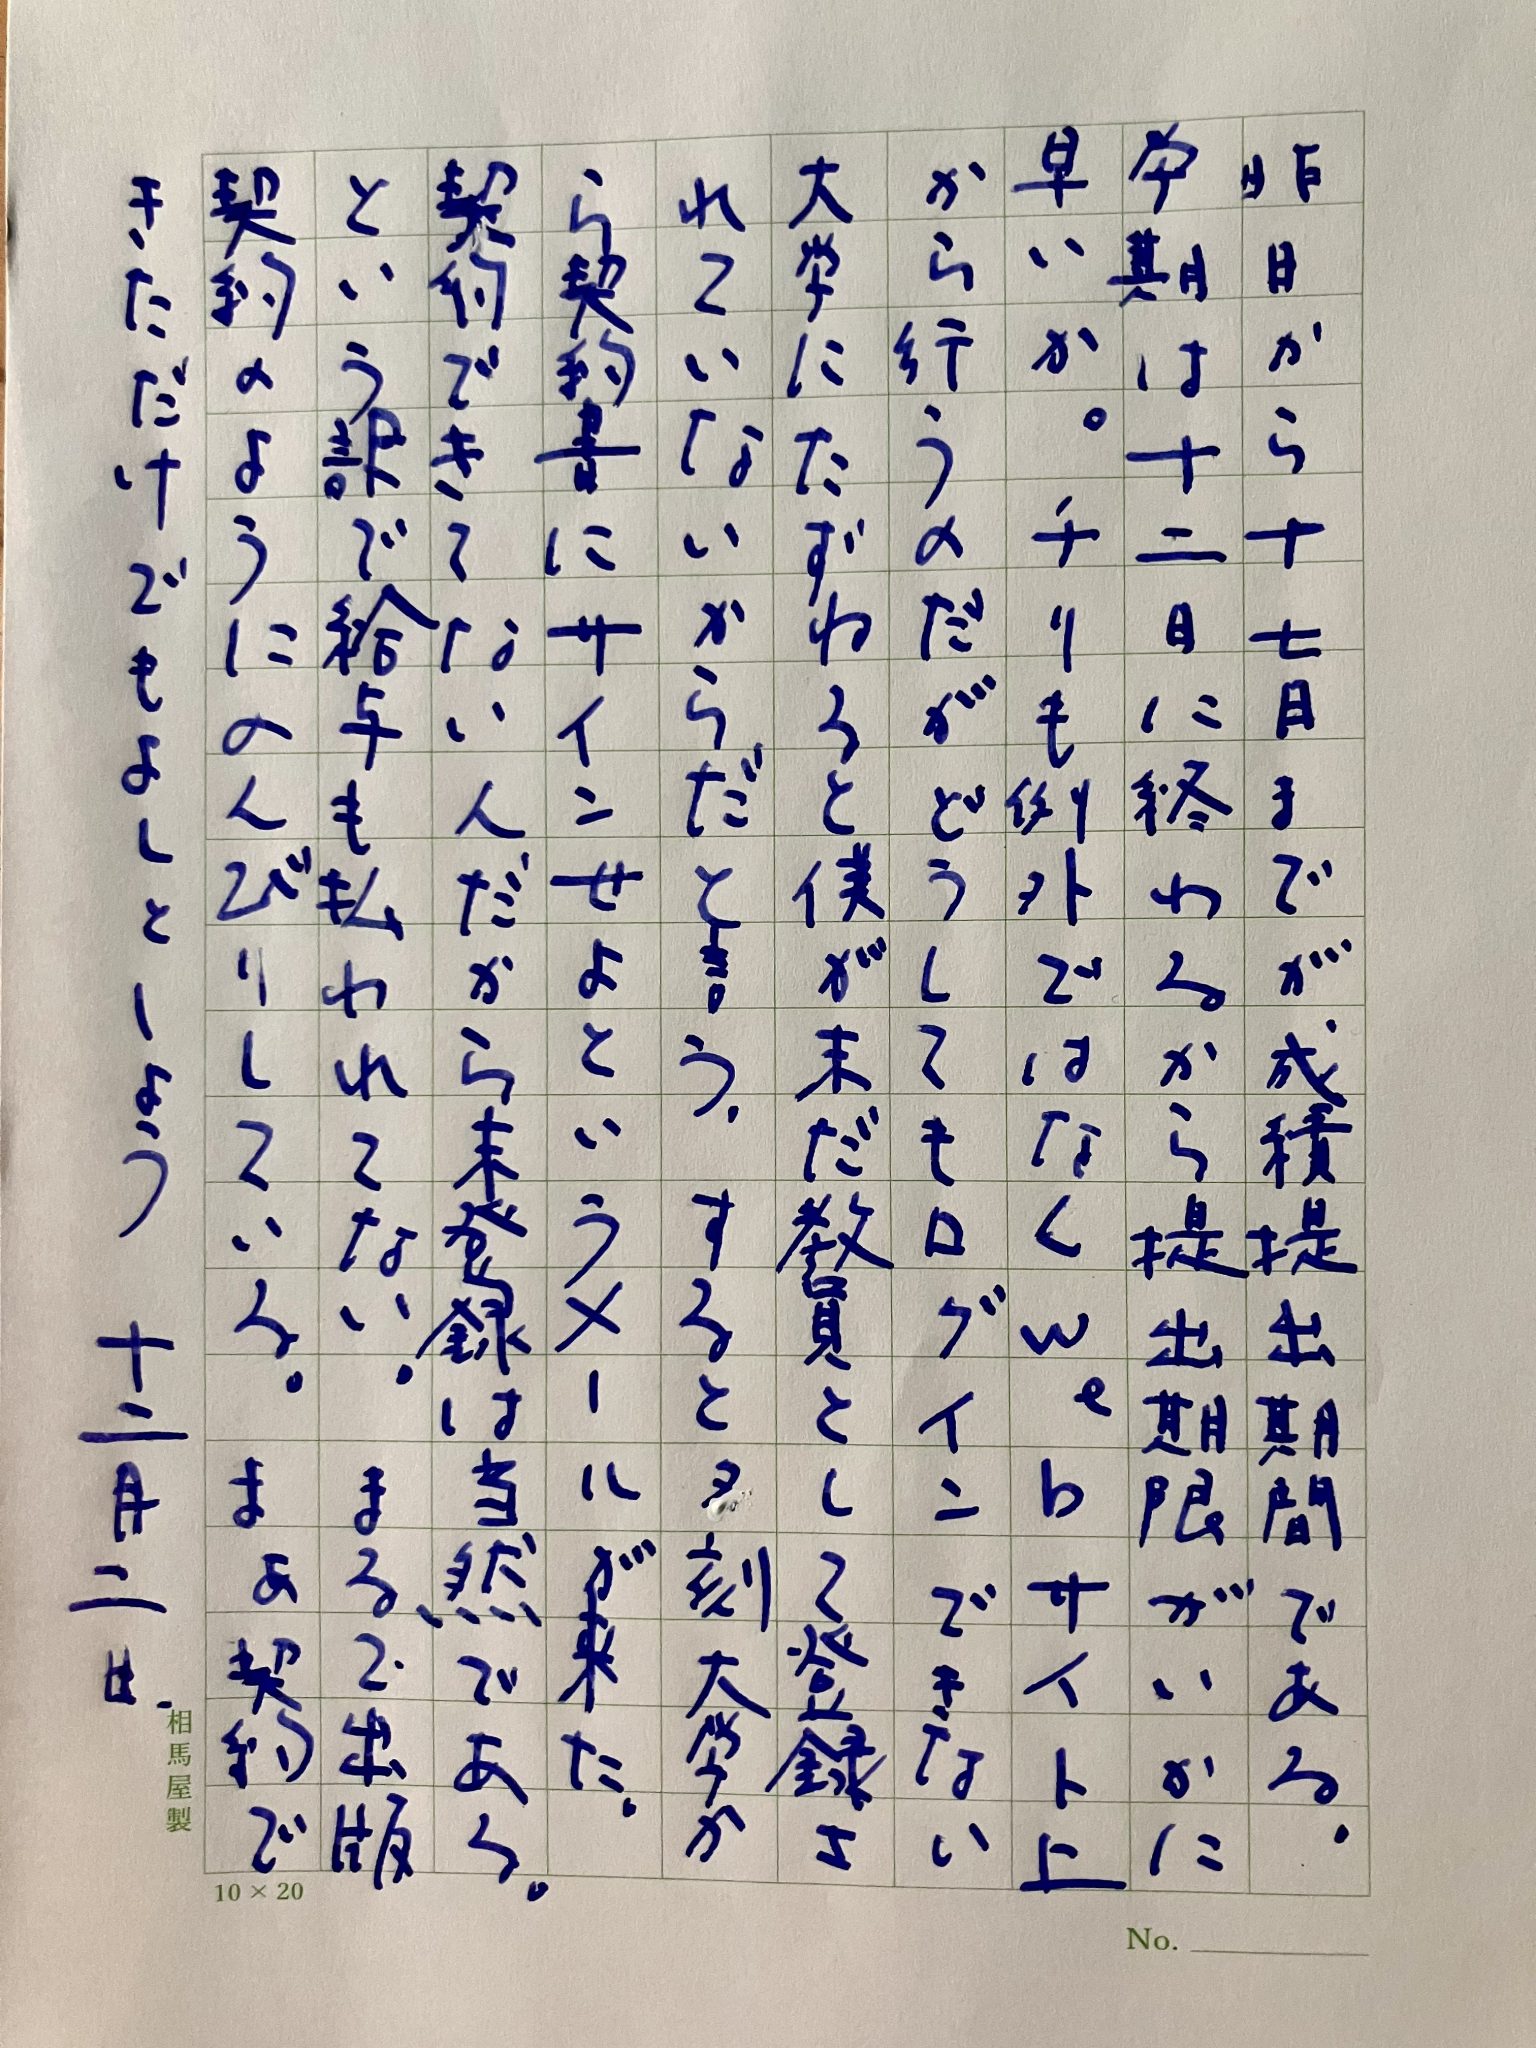 昨日から十七日までが成積提出期間である。
学期は十二日に終わるから提出期限がいかに
早いか。チリも例外ではなくwebサイト上
から行うのだがどうしてもログインできない
大学にたずねると僕が未だ教員として登録さ
れていないからだと言う。すると夕刻大学か
ら契約書にサインせよというメールが来た。
契約できてない人だから未登録は当然である。
という訳で給与も払われてない。まるで出版
契約のようにのんびりしている。まあ契約で
きただけでもよしとしよう 十二月二日.
相馬屋製
10×20
No.